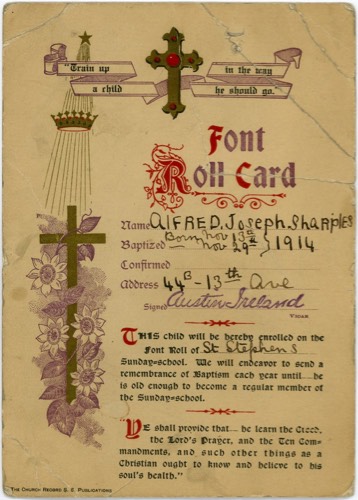 "Train up
in the way
a child
he should go."
Font
Roll Card
Name Alfred. Joseph. Sharples
Born Nov 13th
Baptized Nov 29th } 1914
Confirmed
Address 44B - 13th Ave
Signed Austin Ireland
Vicar
THIS child will be hereby enrolled on the
Font Roll of St Stephens
Sunday-school. We will endeavor to send a
remembrance of Baptism each year until... he
is old enough to become a regular member of
the Sunday-school.
"YE shall provide that... he learn the Creed,
the Lord's Prayer, and the Ten Com-
mandments, and such other things as a
Christian ought to know and believe to his
soul's health."
The Church Record S. S. Publications